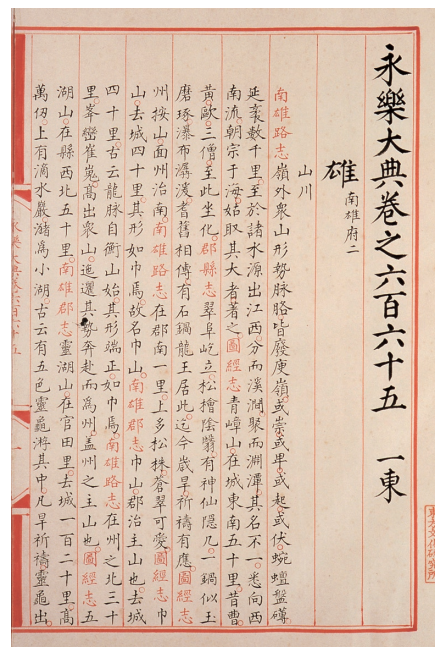 永樂大典卷之六百六十五　一東
雄　南雄府二
山川
南雄路志嶺外衆山形勢脉胳皆廢庾嶺或崇或卑或起或伏蜿蟺盤礴
延袤數千里至於諸水源出江西分而溪澗聚而淵潭其名不一悉向西
南流朝宗于海姑取其大者著之圖經志青嶂山在城東南五十里昔曹
黄歐三僧至此坐化郡縣志翠阜屹立松檜陰翳有神仙隱几一鍋似玉
磨琢瀑布潺湲耆舊相傳有石鍋龍王居此迄今歲旱祈禱有應圖經志
州按山面州治南南雄路志在郡南一里上多松株蒼翠可愛圖經志巾
山去城四十里其形如巾焉故名巾山南雄郡志巾山郡治主山也去城
四十里古云龍脉自衡山始其形端正如巾焉南雄路志在州之北三十
里峯巒崔嵬高出衆山迤邐其勢奔赴而爲州盖州之主山也圖經志五
湖山在縣西北五十里南雄郡志靈湖山在官田里去城一百二十里高
萬仞上有滴水巖潴爲小湖古云有五色靈龜游其中凡旱祈禱靈龜出
永樂大典卷六百六十五